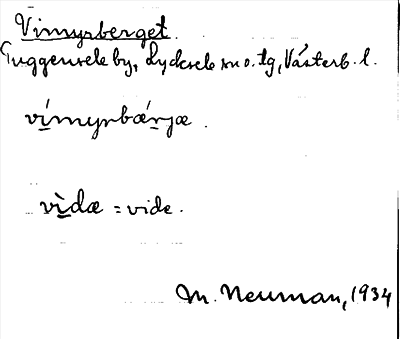 Vimyrberget.
Tuggensele by, Lycksele sn o. tg, Västerb. l.
vímyrbærjæ.
vìdæ = vide.
M. Neuman, 1934